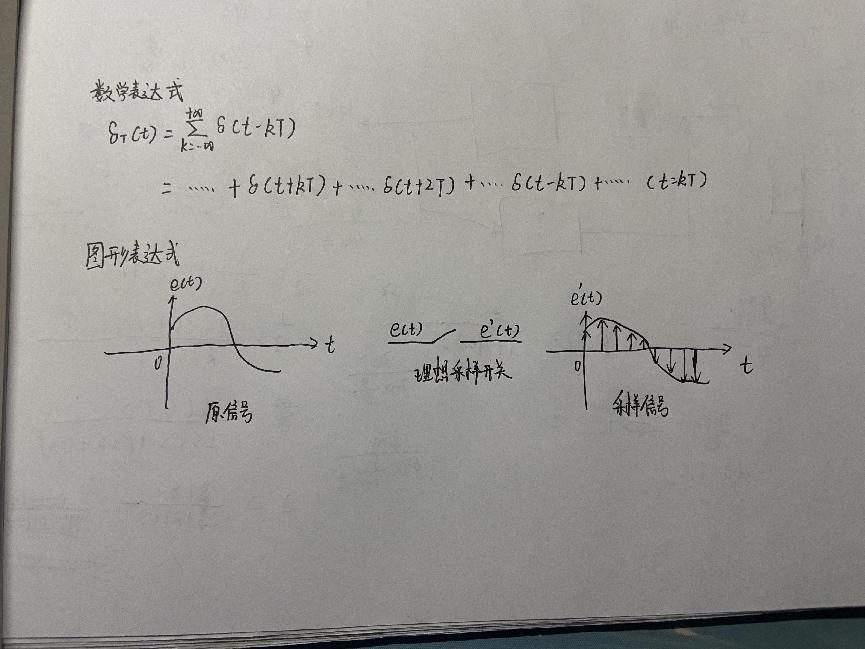 数学表达式
δT(t)=∑(k=-∞,+∞) δ(t-kT)
= ..... +δ(t+kT)+..... δ(t+2T)+.... δ(t-kT)+..... (t=kT)
图形表达式
e(t)
t
0
原信号
e(t) e'(t)
理想采样开关
e'(t)
t
0
采样信号